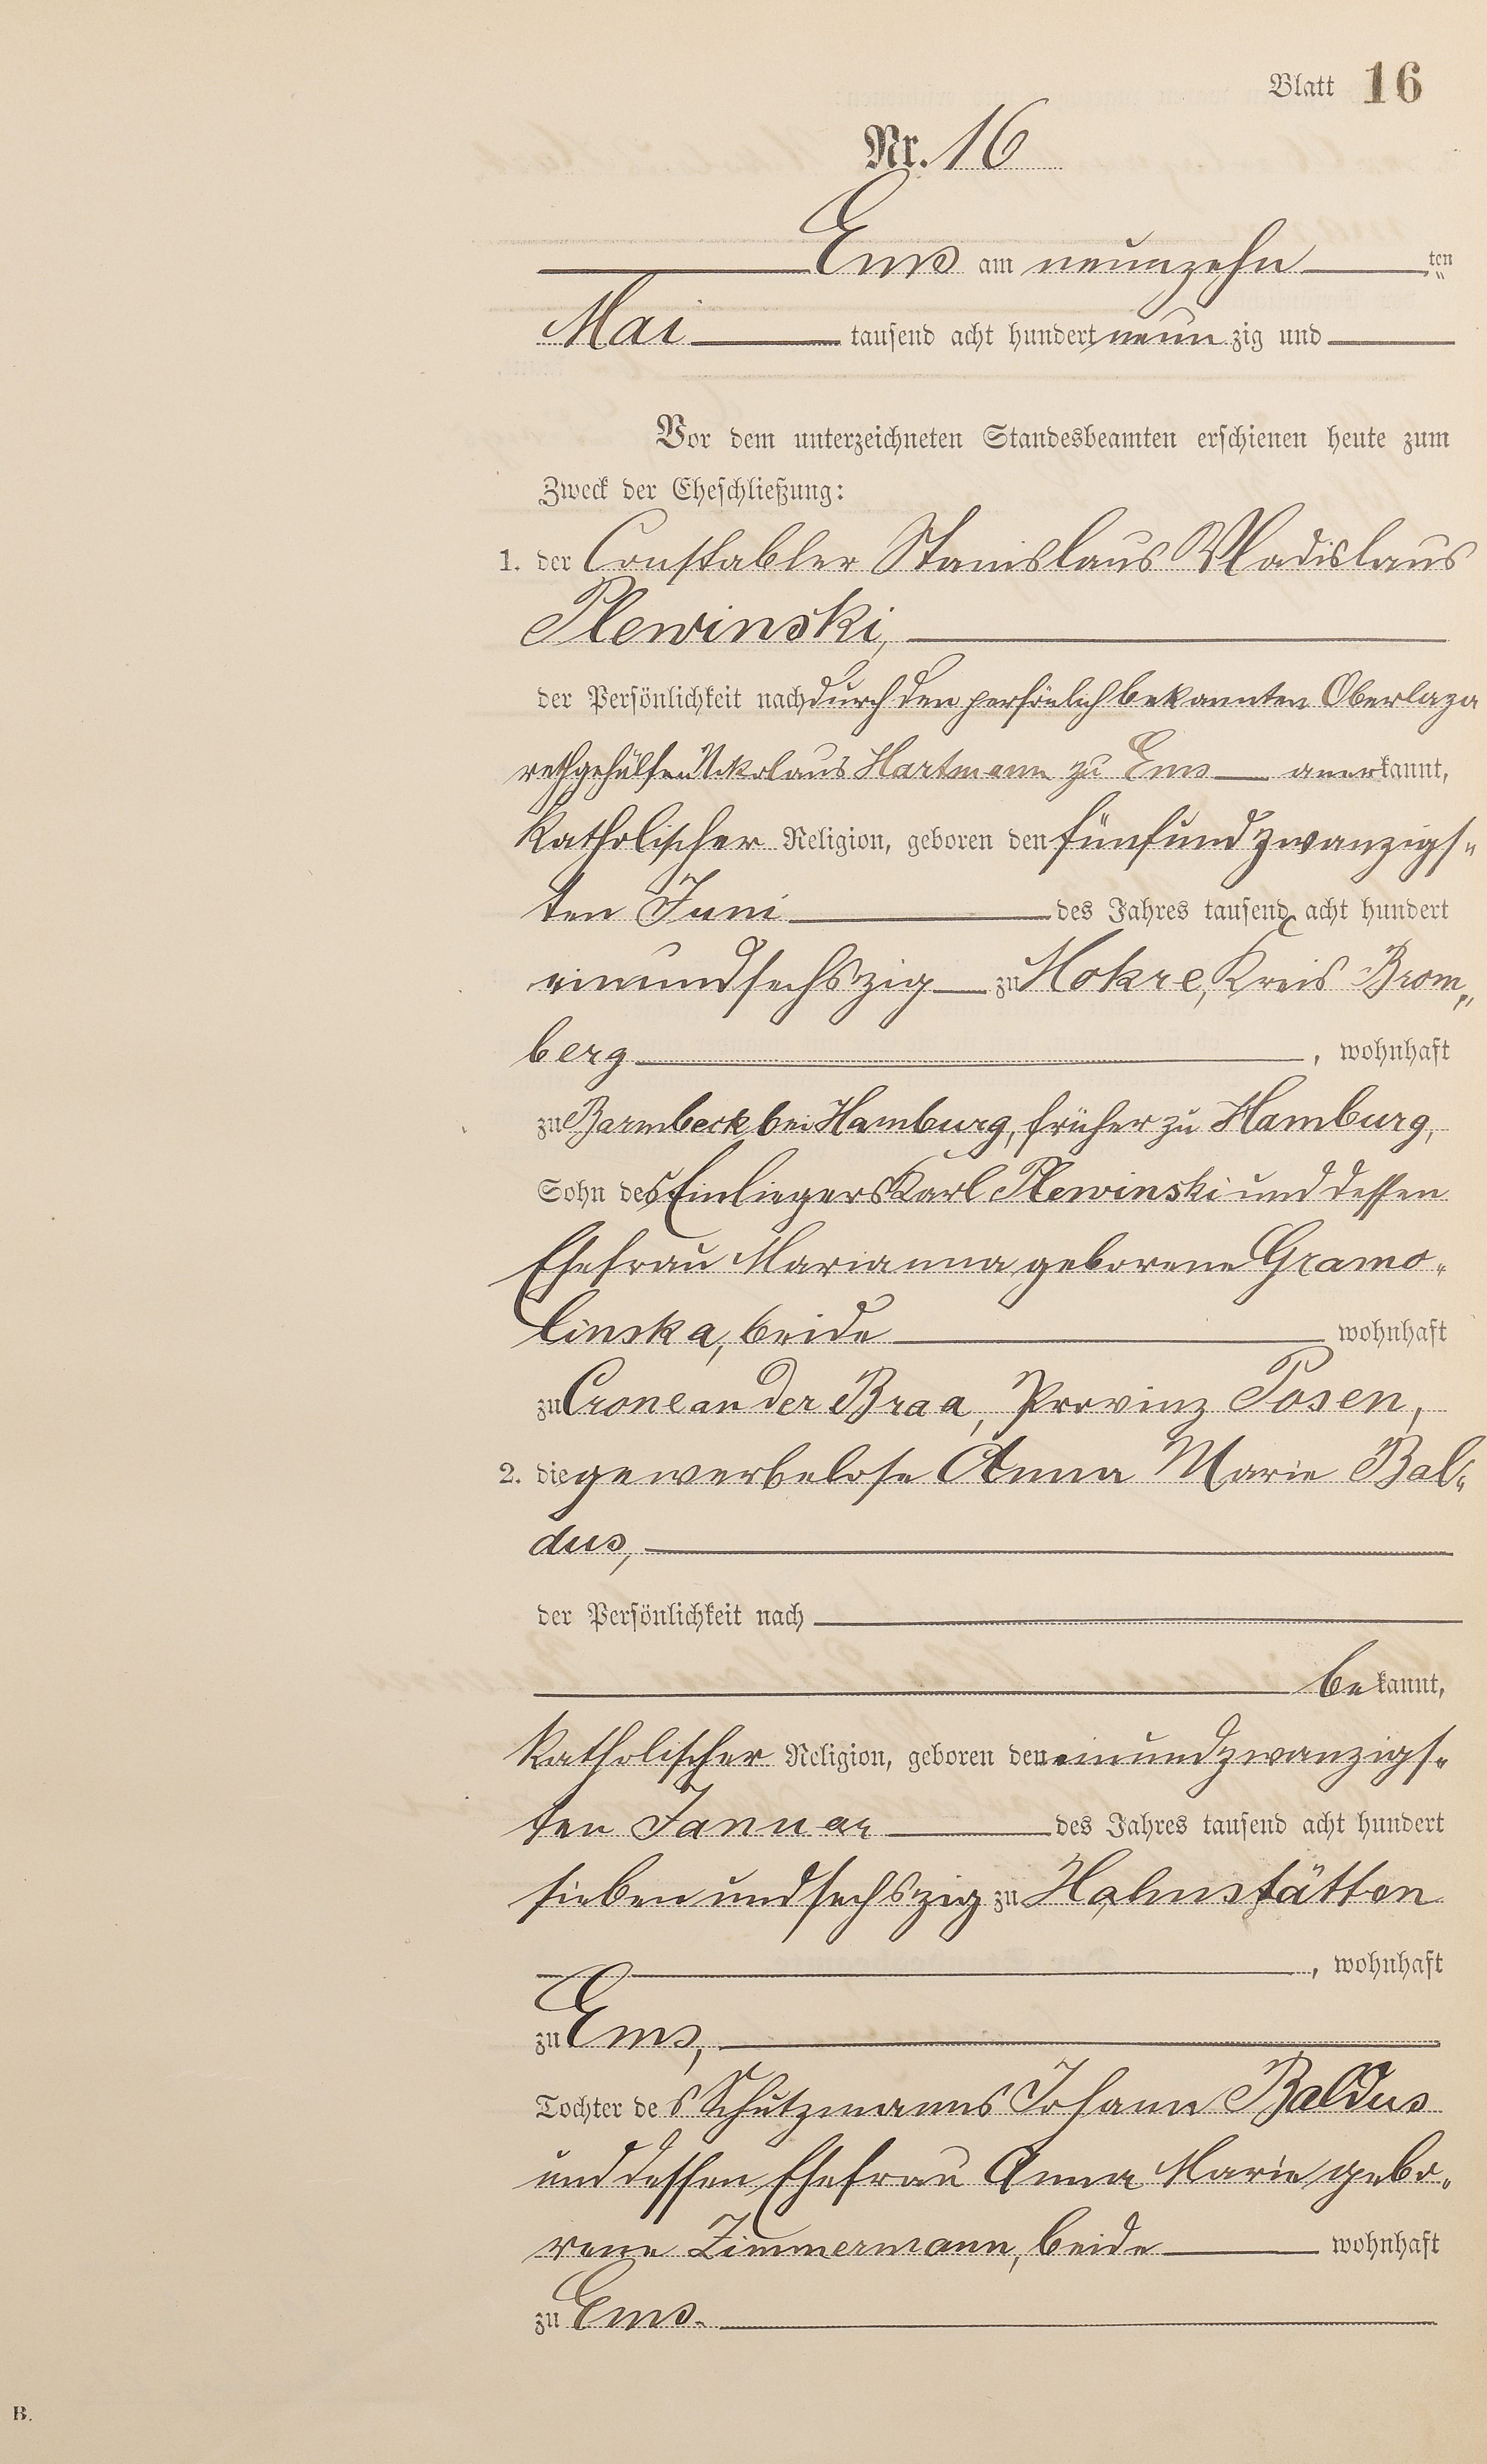 Blatt 16
Nr. 16
Ems am neunzehn ten
Mai tausend acht hundert neun zig und
Vor dem unterzeichneten Standesbeamten erschienen heute zum
Zweck der Eheschließung:
1. der Constabler Stanislaus Wladislaus
Plewinski,
der Persönlichkeit nach durch den persönlich bekannten Oberlaza
rethgehülfen Nikolaus Hartmann zu Ems anerkannt,
katholischer Religion, geboren den fünfundzwanzigs-
ten Juni des Jahres tausend acht hundert
einundsechszig zu Mokre, Kreis Brom-
berg, wohnhaft
zu Barmbeck bei Hamburg, früher zu Hamburg,
Sohn des Einliegers Karl Plewinski und dessen
Ehefrau Marianna geborene Gramo-
linska, beide wohnhaft
zu Crone an der Braa, Provinz Posen,
2. die gewerbelose Anna Marie Bal-
dus,
der Persönlichkeit nach
bekannt,
katholischer Religion, geboren den einundzwanzigs-
ten Januar des Jahres tausend acht hundert
siebenundsechszig zu Hahnstätten
, wohnhaft
zu Ems,
Tochter des Schutzmanns Johann Baldus
und dessen Ehefrau Anna Marie gebo-
rene Zimmermann, beide wohnhaft
zu Ems.
B.